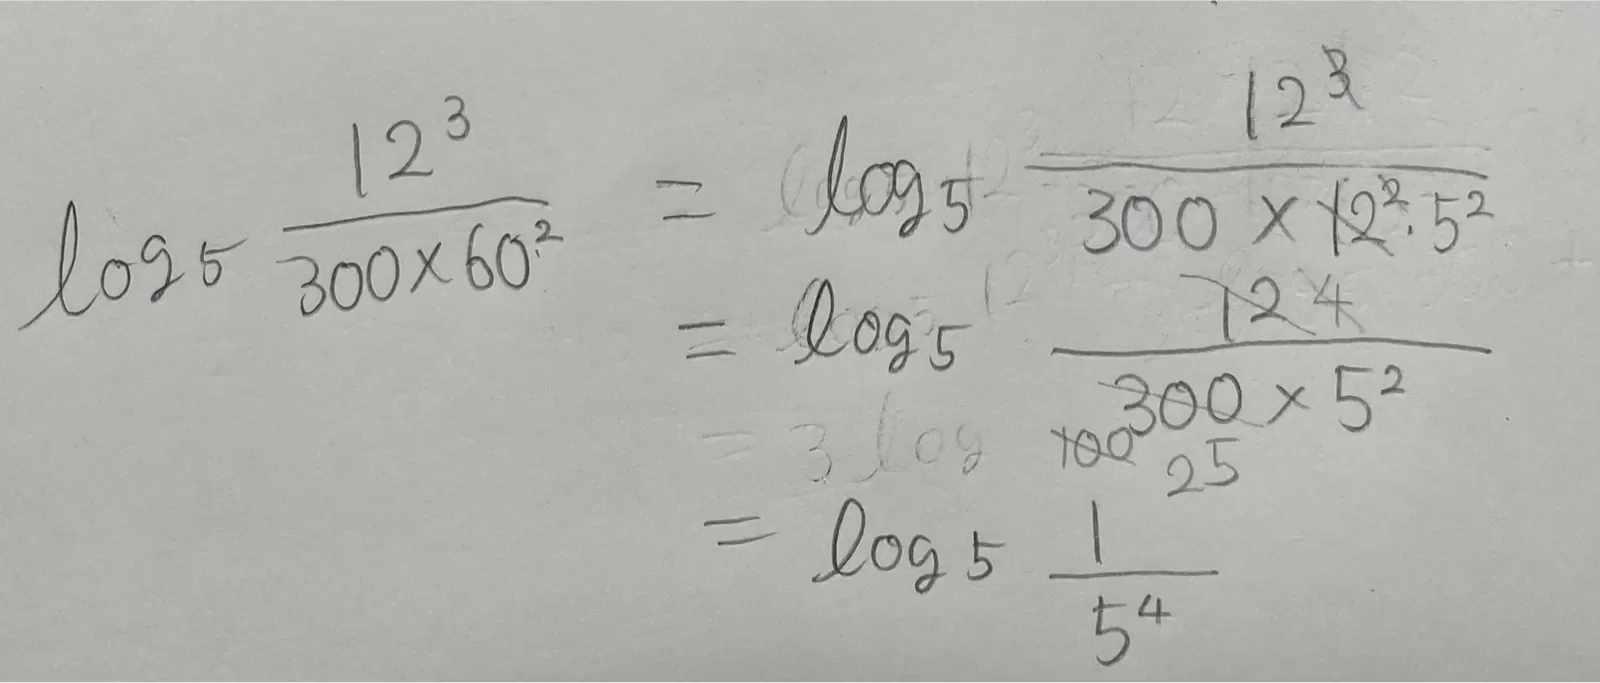 log₅ 12³/(300×60²) = log₅ 12³/(300 × 12²·5²)
= log₅ 12 4/(300 × 5²)
100 25
= 3 log
= log₅ 1/5⁴